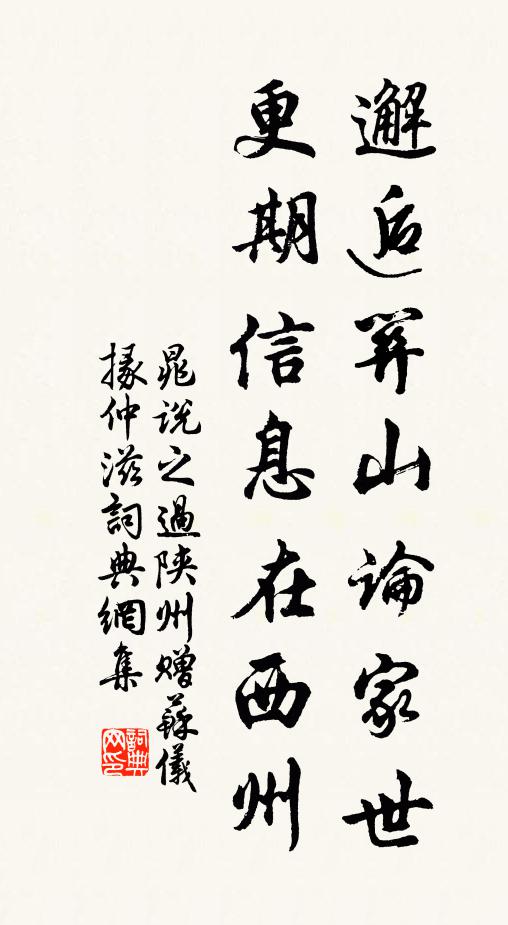 邂逅關山論家世
更期信息在西州
晁說之過陝州贈蘇儀
掾仲滋詞典網集
詞典网印